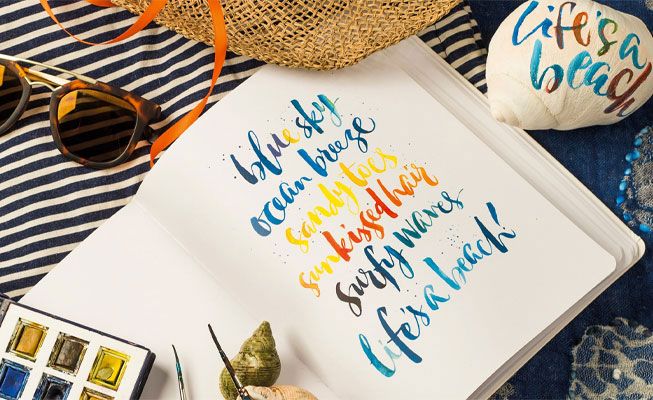 blue sky
ocean breeze
sandy toes
sunkissed hair
surfy waves
life's a beach!
life's a
beach